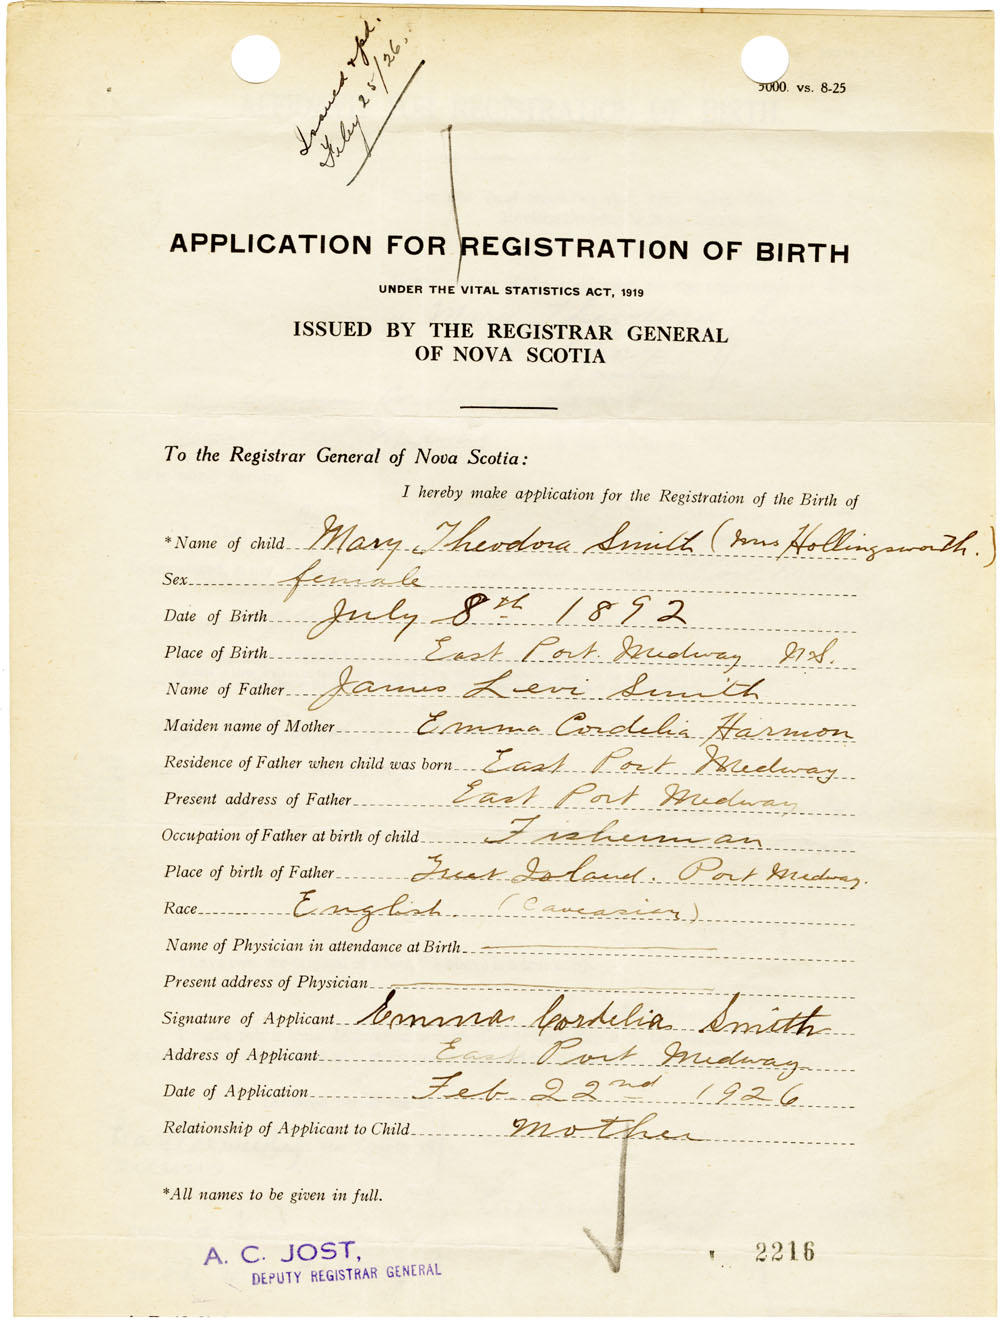 Issued & pd.
Feby 25/26.
5000. vs. 8-25
APPLICATION FOR REGISTRATION OF BIRTH
UNDER THE VITAL STATISTICS ACT, 1919
ISSUED BY THE REGISTRAR GENERAL
OF NOVA SCOTIA
To the Registrar General of Nova Scotia:
I hereby make application for the Registration of the Birth of
*Name of child Mary Theodora Smith (Mrs Hollingsworth.)
Sex female
Date of Birth July 8th 1892
Place of Birth East Port Medway N.S.
Name of Father James Levi Smith
Maiden name of Mother Emma Cordelia Harmon
Residence of Father when child was born East Port Medway
Present address of Father East Port Medway
Occupation of Father at birth of child Fisherman
Place of birth of Father Island. Port Medway.
Race English. (Caucasian)
Name of Physician in attendance at Birth
Present address of Physician
Signature of Applicant Emma Cordelia Smith
Address of Applicant East Port Medway
Date of Application Feb 22nd 1926
Relationship of Applicant to Child Mother
*All names to be given in full.
A. C. JOST,
DEPUTY REGISTRAR GENERAL
2216